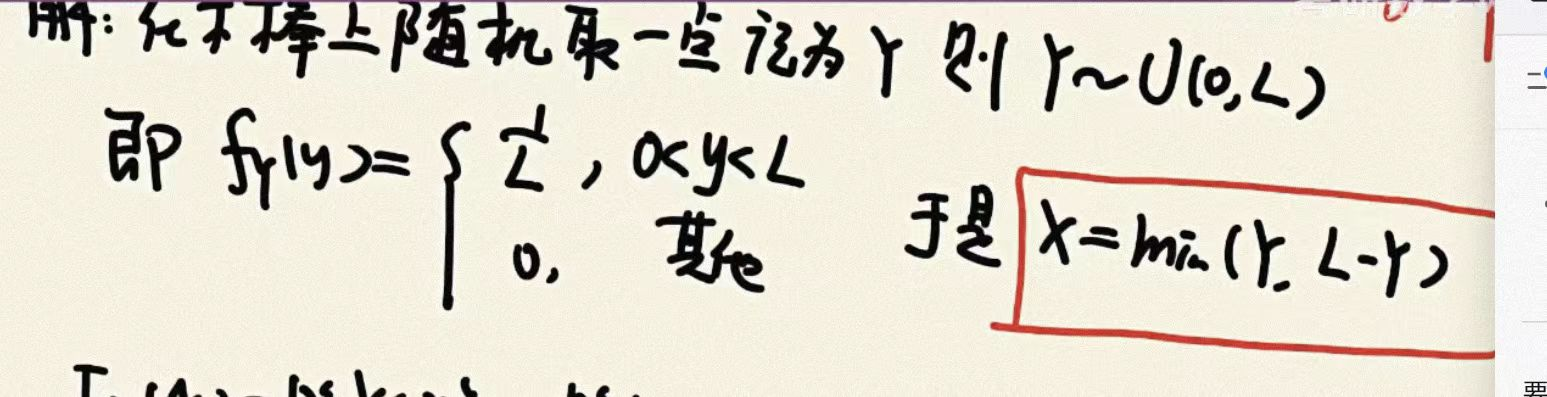 解: 在木棒上随机取一点记为Y 则 Y~U(0,L)
即 f_Y(y)= { 1/L , 0<y<L
0, 其他
于是 X=min(Y, L-Y)
要